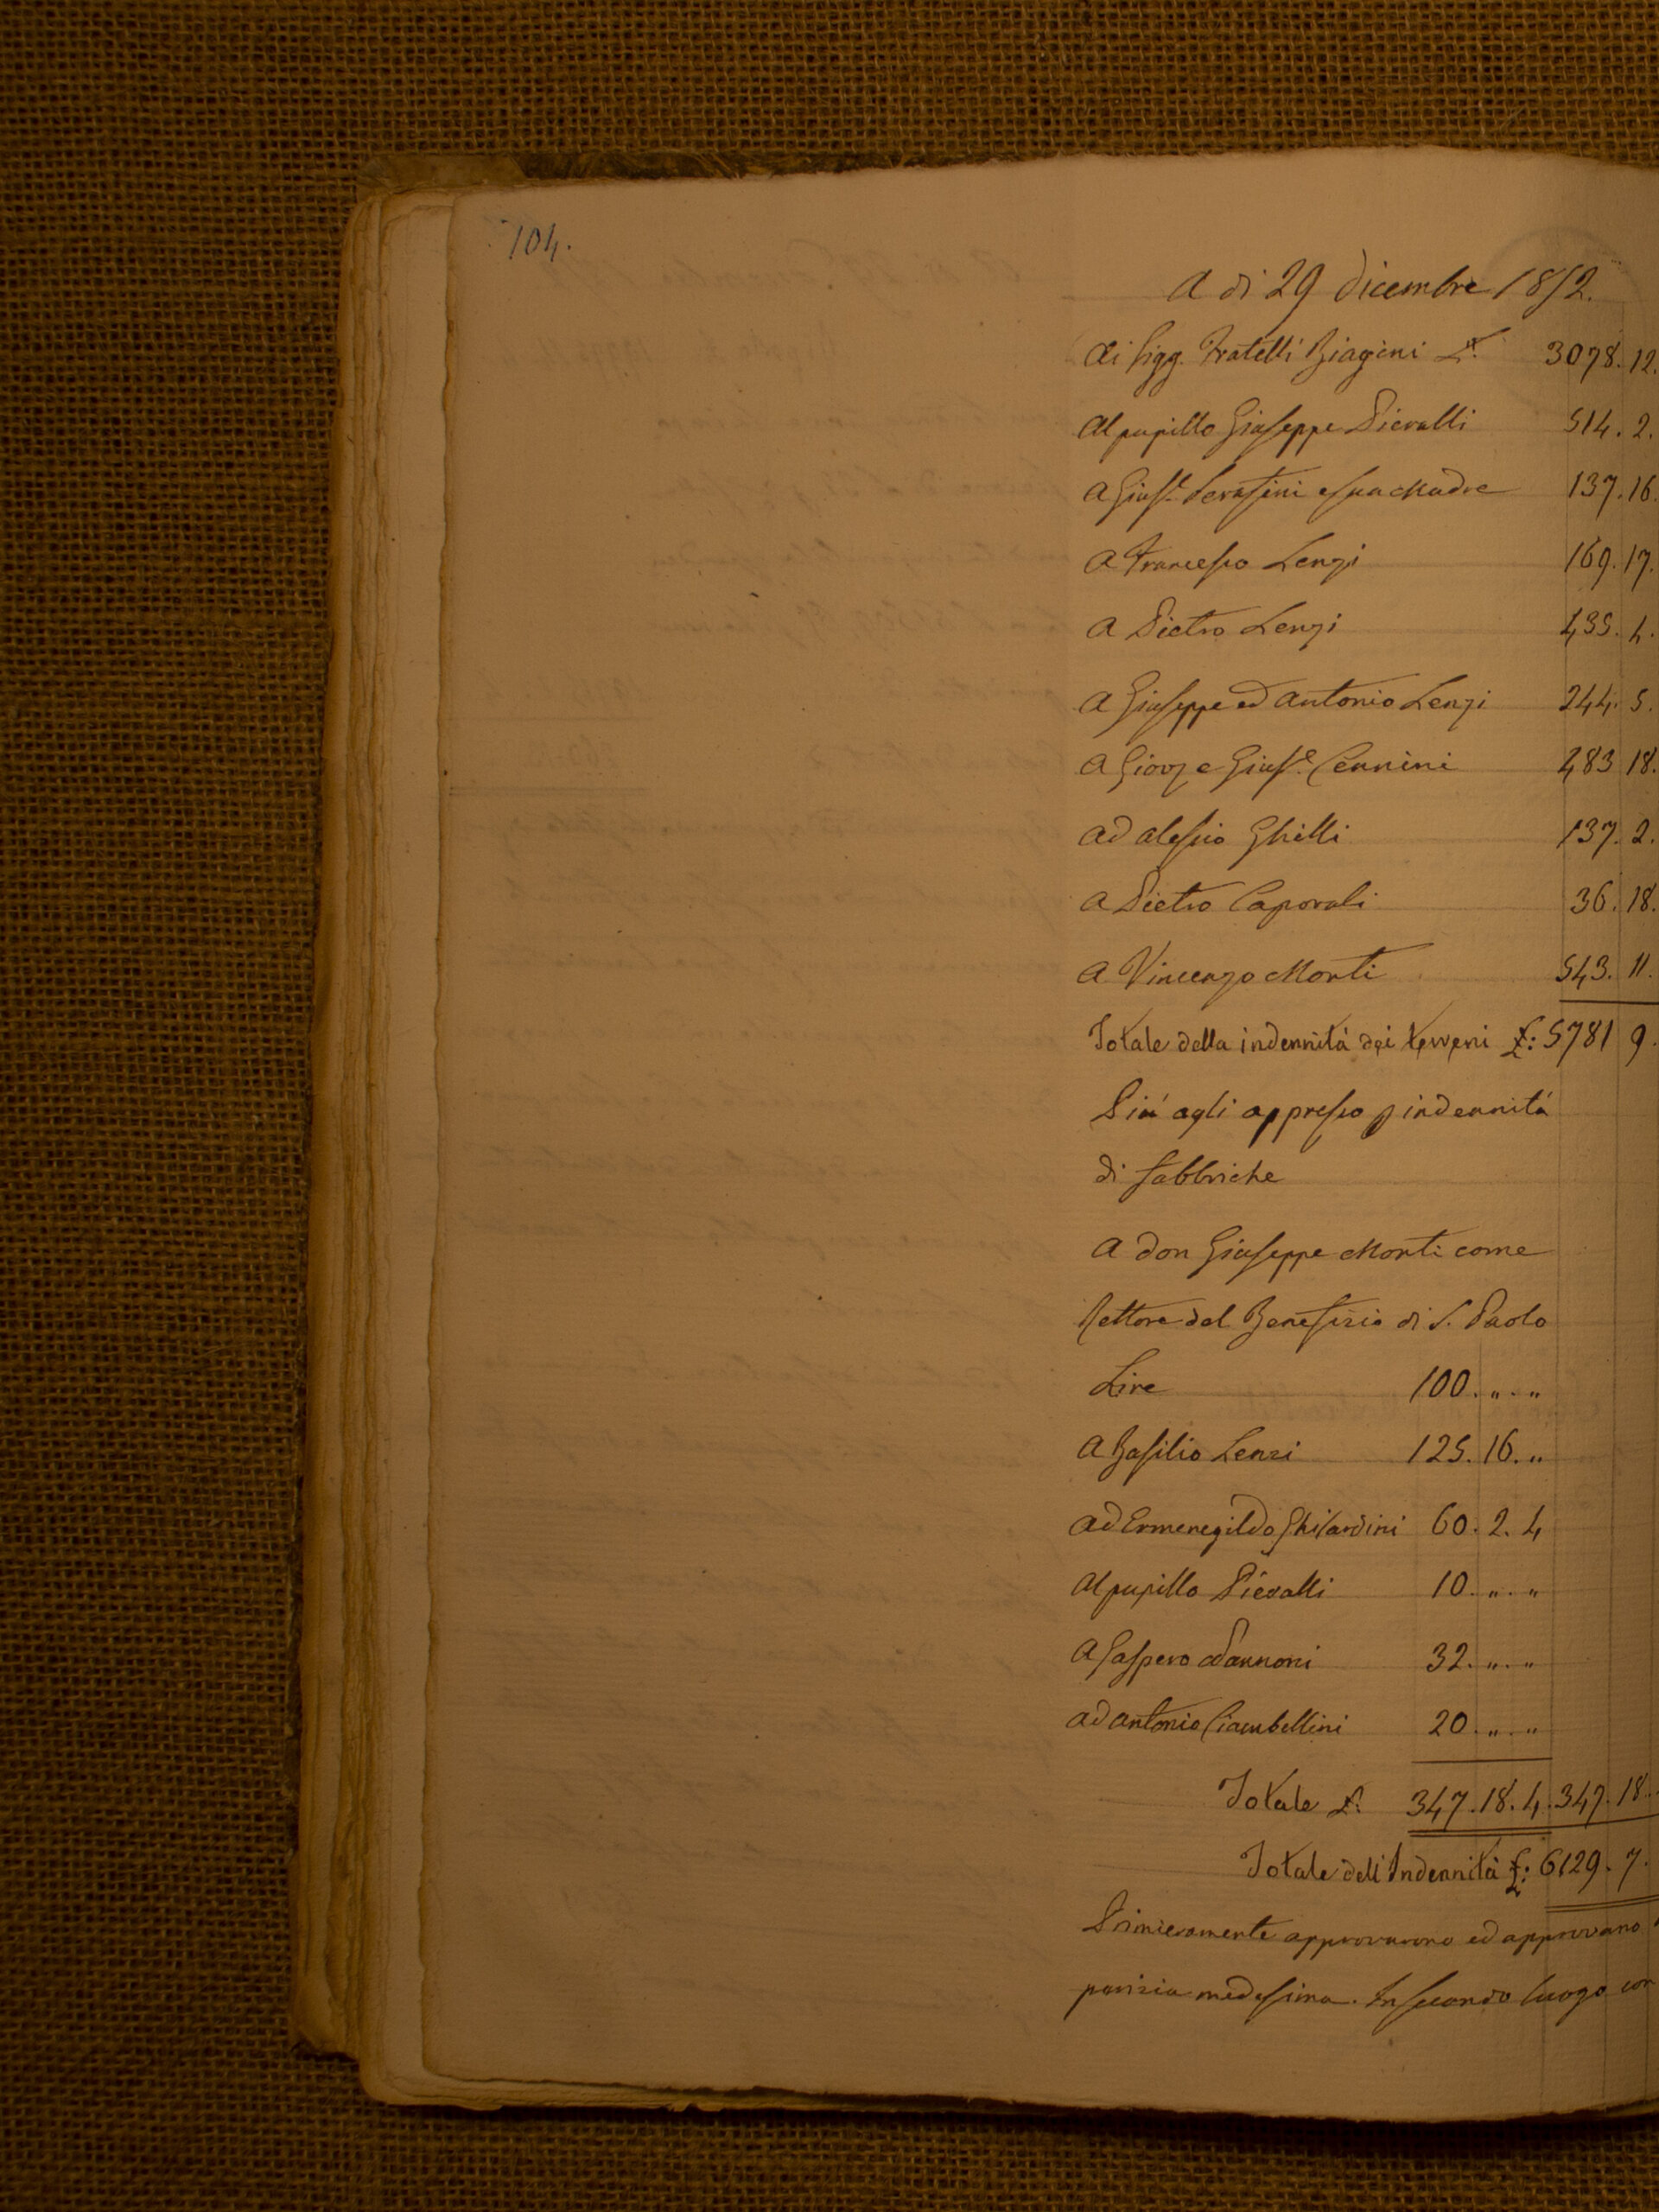 104.
A dì 29 dicembre 1852.
Ai Sigg. Fratelli Biagini L. 3078. 12.
Al pupillo Giuseppe Pieralli 514. 2.
A Giuse. Serafini e sua Madre 137. 16.
A Francesco Lenzi 169. 17.
A Pietro Lenzi 435. 4.
A Giuseppe ed Antonio Lenzi 244. 5.
A Giov. e Giuse. Cennini 483 18.
Ad Alessio Ghilli 137. 2.
A Pietro Caporali 36. 18.
A Vincenzo Monti 543. 11.
Totale della indennità dei terreni £: 5781 9.
Più agli appresso p indennità
di fabbriche
A don Giuseppe Monti come
Rettore del Benefizio di S. Paolo
Lire 100. „. „
A Basilio Lenzi 125. 16. „
Ad Ermenegildo Ghilardini 60. 2. 4
Al pupillo Pieralli 10. „. „
A Gaspero Vannoni 32. „. „
Ad Antonio Ciambellini 20. „. „
Totale £. 347. 18. 4. 347. 18.
Totale dell'Indennità £: 6129. 7.
Primieramente approvarono ed approvano
perizia medesima. In secondo luogo con